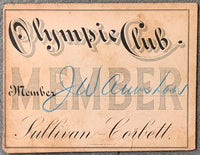 Olympic Club.
MEMBER
Member
Sullivan-Corbett.